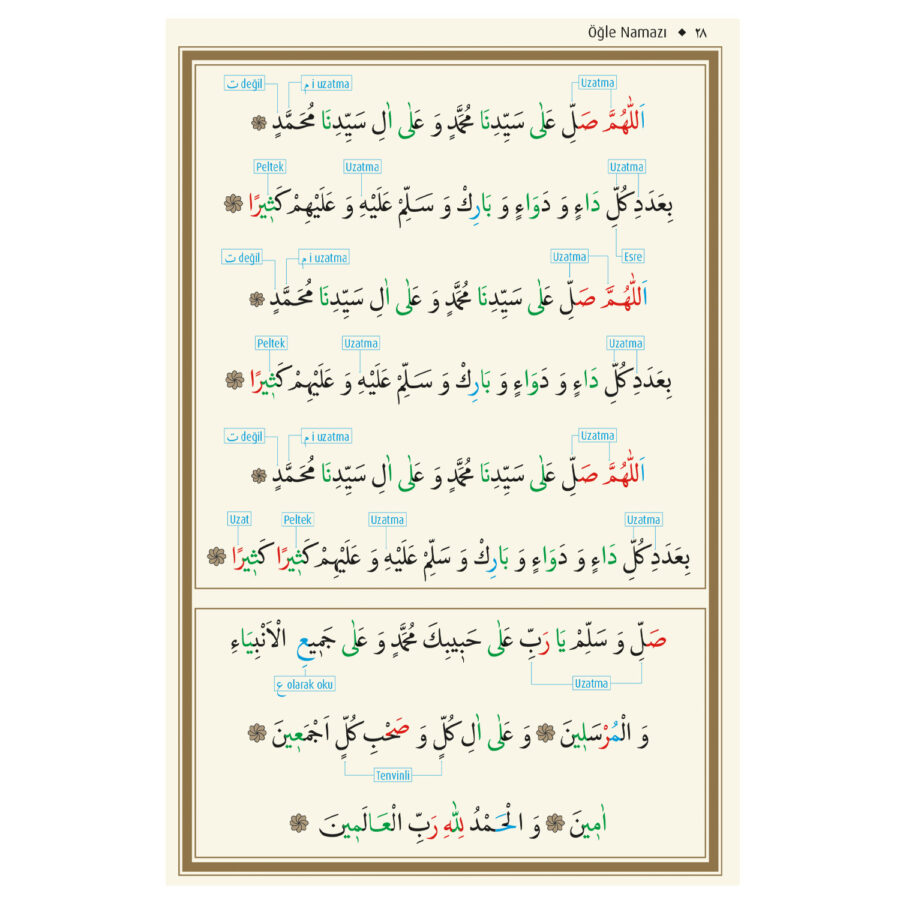 Öğle Namazı ◆ ٢٨
ت değil مٖ i uzatma Uzatma
اَللّٰهُمَّ صَلِّ عَلٰى سَيِّدِنَا مُحَمَّدٍ وَ عَلٰى اٰلِ سَيِّدِنَا مُحَمَّدٍ ❁
Peltek Uzatma Uzatma
بِعَدَدِ كُلِّ دَاءٍ وَ دَوَاءٍ وَ بَارِكْ وَ سَلِّمْ عَلَيْهِ وَ عَلَيْهِمْ كَثٖيرًا ❁
Esre
ت değil مٖ i uzatma Uzatma
اَللّٰهُمَّ صَلِّ عَلٰى سَيِّدِنَا مُحَمَّدٍ وَ عَلٰى اٰلِ سَيِّدِنَا مُحَمَّدٍ ❁
Peltek Uzatma Uzatma
بِعَدَدِ كُلِّ دَاءٍ وَ دَوَاءٍ وَ بَارِكْ وَ سَلِّمْ عَلَيْهِ وَ عَلَيْهِمْ كَثٖيرًا ❁
ت değil مٖ i uzatma Uzatma
اَللّٰهُمَّ صَلِّ عَلٰى سَيِّدِنَا مُحَمَّدٍ وَ عَلٰى اٰلِ سَيِّدِنَا مُحَمَّدٍ ❁
Uzat Peltek Uzatma Uzatma
بِعَدَدِ كُلِّ دَاءٍ وَ دَوَاءٍ وَ بَارِكْ وَ سَلِّمْ عَلَيْهِ وَ عَلَيْهِمْ كَثٖيرًا كَثٖيرًا ❁
صَلِّ وَ سَلِّمْ يَا رَبِّ عَلٰى حَبٖيبِكَ مُحَمَّدٍ وَ عَلٰى جَمٖيعِ الْاَنْبِيَاءِ
ع olarak oku Uzatma
وَ الْمُرْسَلٖينَ ❁ وَ عَلٰى اٰلِ كُلٍّ وَ صَحْبِ كُلٍّ اَجْمَعٖينَ ❁
Tenvinli
اٰمٖينَ ❁ وَ الْحَمْدُ لِلّٰهِ رَبِّ الْعَالَمٖينَ ❁